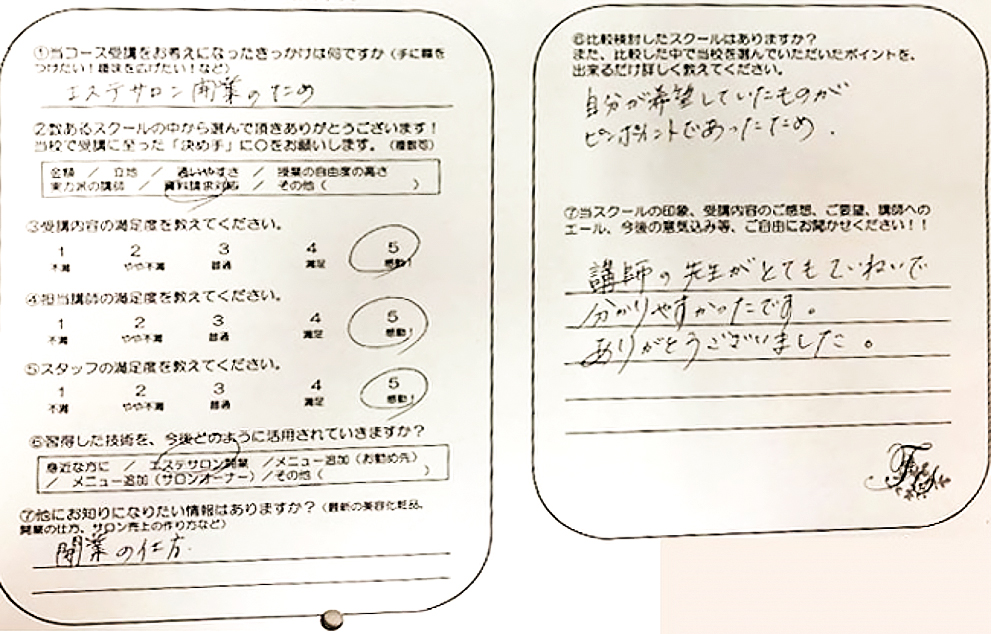 ①当コース受講をお考えになったきっかけは何ですか(手に職を
つけたい!趣味を広げたい!など)
エステサロン開業のため
②数あるスクールの中から選んで頂きありがとうございます!
当校で受講に至った「決め手」に○をお願いします。(複数可)
金額 / 立地 / 通いやすさ / 授業の自由度の高さ
実力派の講師 / 資料請求対応 / その他( )
③受講内容の満足度を教えてください。
1 2 3 4 5
不満 やや不満 普通 満足 感動!
④担当講師の満足度を教えてください。
1 2 3 4 5
不満 やや不満 普通 満足 感動!
⑤スタッフの満足度を教えてください。
1 2 3 4 5
不満 やや不満 普通 満足 感動!
⑥習得した技術を、今後どのように活用されていきますか?
身近な方に / エステサロン開業 /メニュー追加(お勤め先)
/ メニュー追加(サロンオーナー)/その他( )
⑦他にお知りになりたい情報はありますか?(最新の美容化粧品、
開業の仕方、サロン売上の作り方など)
開業の仕方.
⑥比較検討したスクールはありますか?
また、比較した中で当校を選んでいただいたポイントを、
出来るだけ詳しく教えてください。
自分が希望していたものが
ピンポイントであったため.
⑦当スクールの印象、受講内容のご感想、ご要望、講師への
エール、今後の意気込み等、ご自由にお聞かせください!!
講師の先生がとてもていねいで
分かりやすかったです。
ありがとうございました。